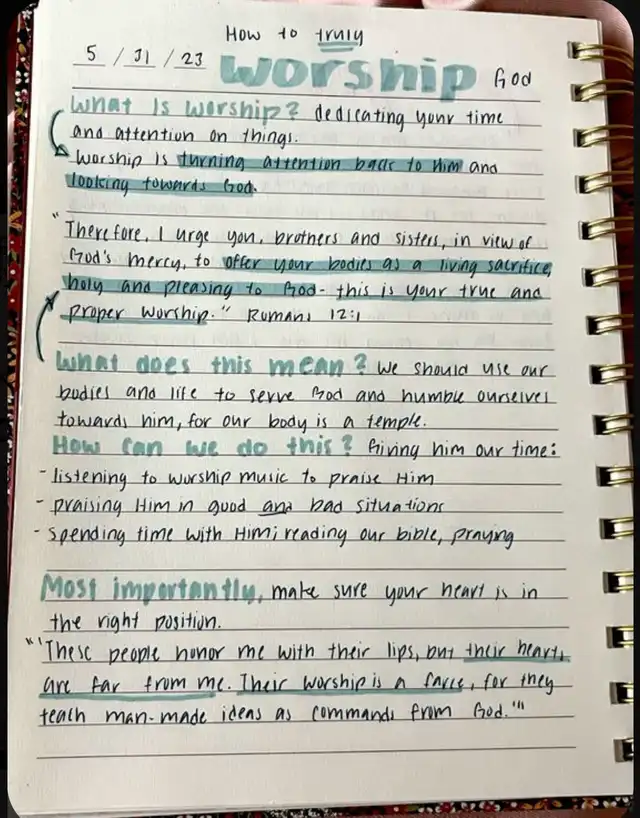 How to truly
5 / 31 / 23 worship God
What Is Worship? dedicating your time
and attention on things.
Worship is turning attention back to Him and
looking towards God.
"Therefore, I urge you, brothers and sisters, in view of
God's mercy, to offer your bodies as a living sacrifice,
holy and pleasing to God- this is your true and
proper worship." Romans 12:1
What does this mean? We should use our
bodies and life to serve God and humble ourselves
towards him, for our body is a temple.
How can we do this? Giving him our time:
- listening to worship music to praise Him
- praising Him in good and bad situations
- spending time with Him; reading our bible, praying
Most importantly, make sure your heart is in
the right position.
"'These people honor me with their lips, but their hearts
are far from me. Their worship is a farce, for they
teach man-made ideas as commands from God.'"